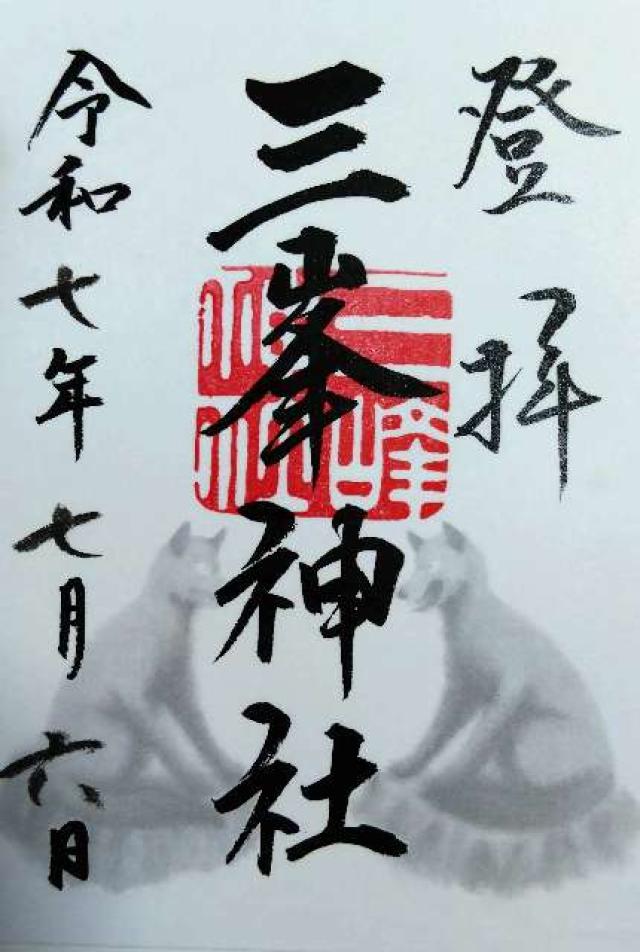 登拝
三峯神社
三峰神社
令和七年七月六日